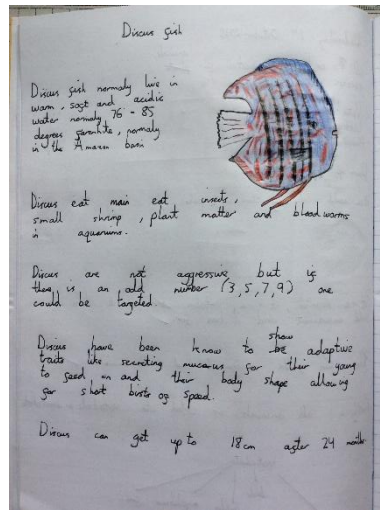 Discus fish
Discus fish normaly live in
warm, soft and acidic
water normaly 76 - 85
degrees farenhite, normaly
in the Amazon basin
Discus eat main eat insects,
small shrimp, plant matter and bloodworms
in aquariums.
Discus are not aggressive but if
there is an odd number (3,5,7,9) one
could be targeted
Discus have been know to show adaptive
traits like secreting mucus for their young
to feed on and their body shape allowing
for short bursts of speed.
Discus can get up to 18cm after 24 months